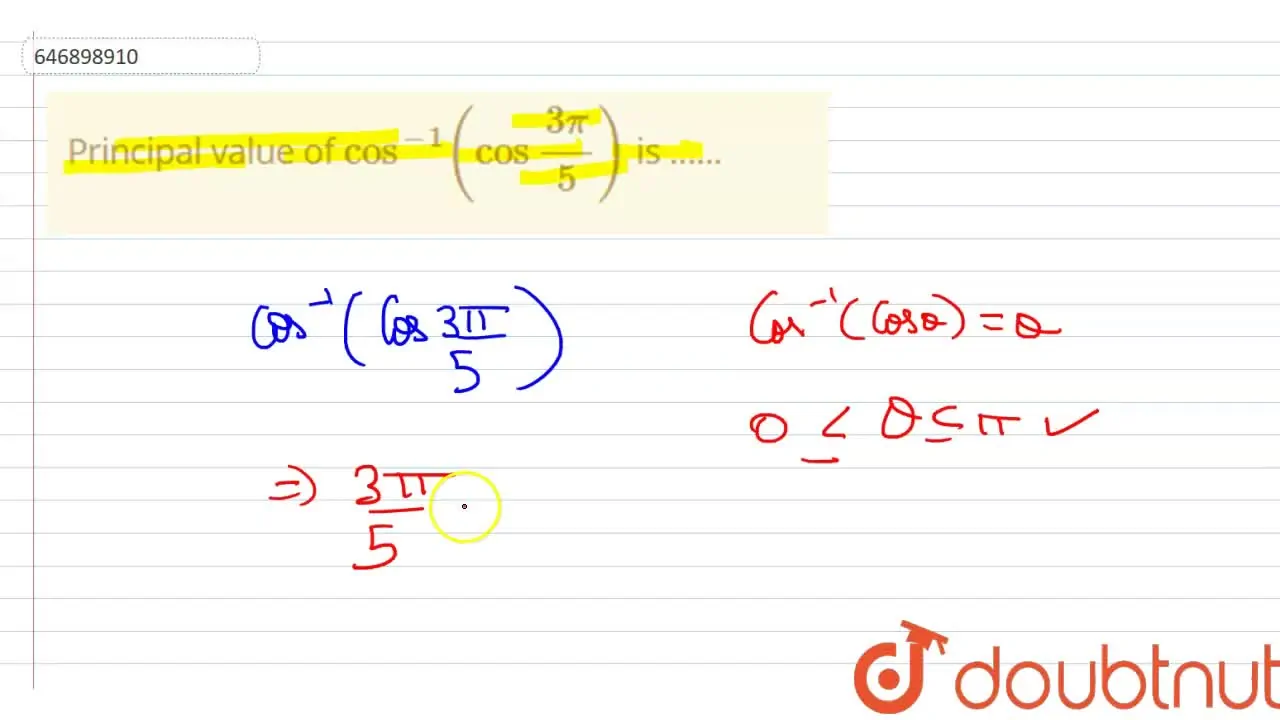 646898910
Principal value of cos⁻¹(cos 3π/5) is ......
cos⁻¹(Cos 3π/5)
Cos⁻¹(Cosθ) = θ
0 ≤ θ ≤ π ✓
⇒ 3π/5
doubtnut